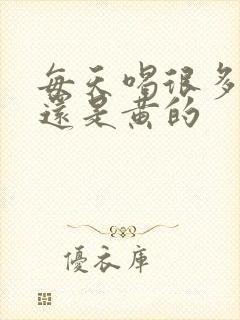 每天喝很多
還是黄的
優衣庫